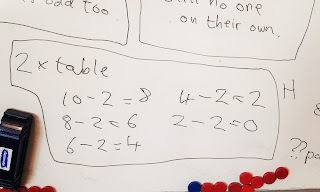 odd too
no one
on their own.
2 x table
10-2=8
8-2=6
6-2=4
4-2=2
2-2=0
H
??po